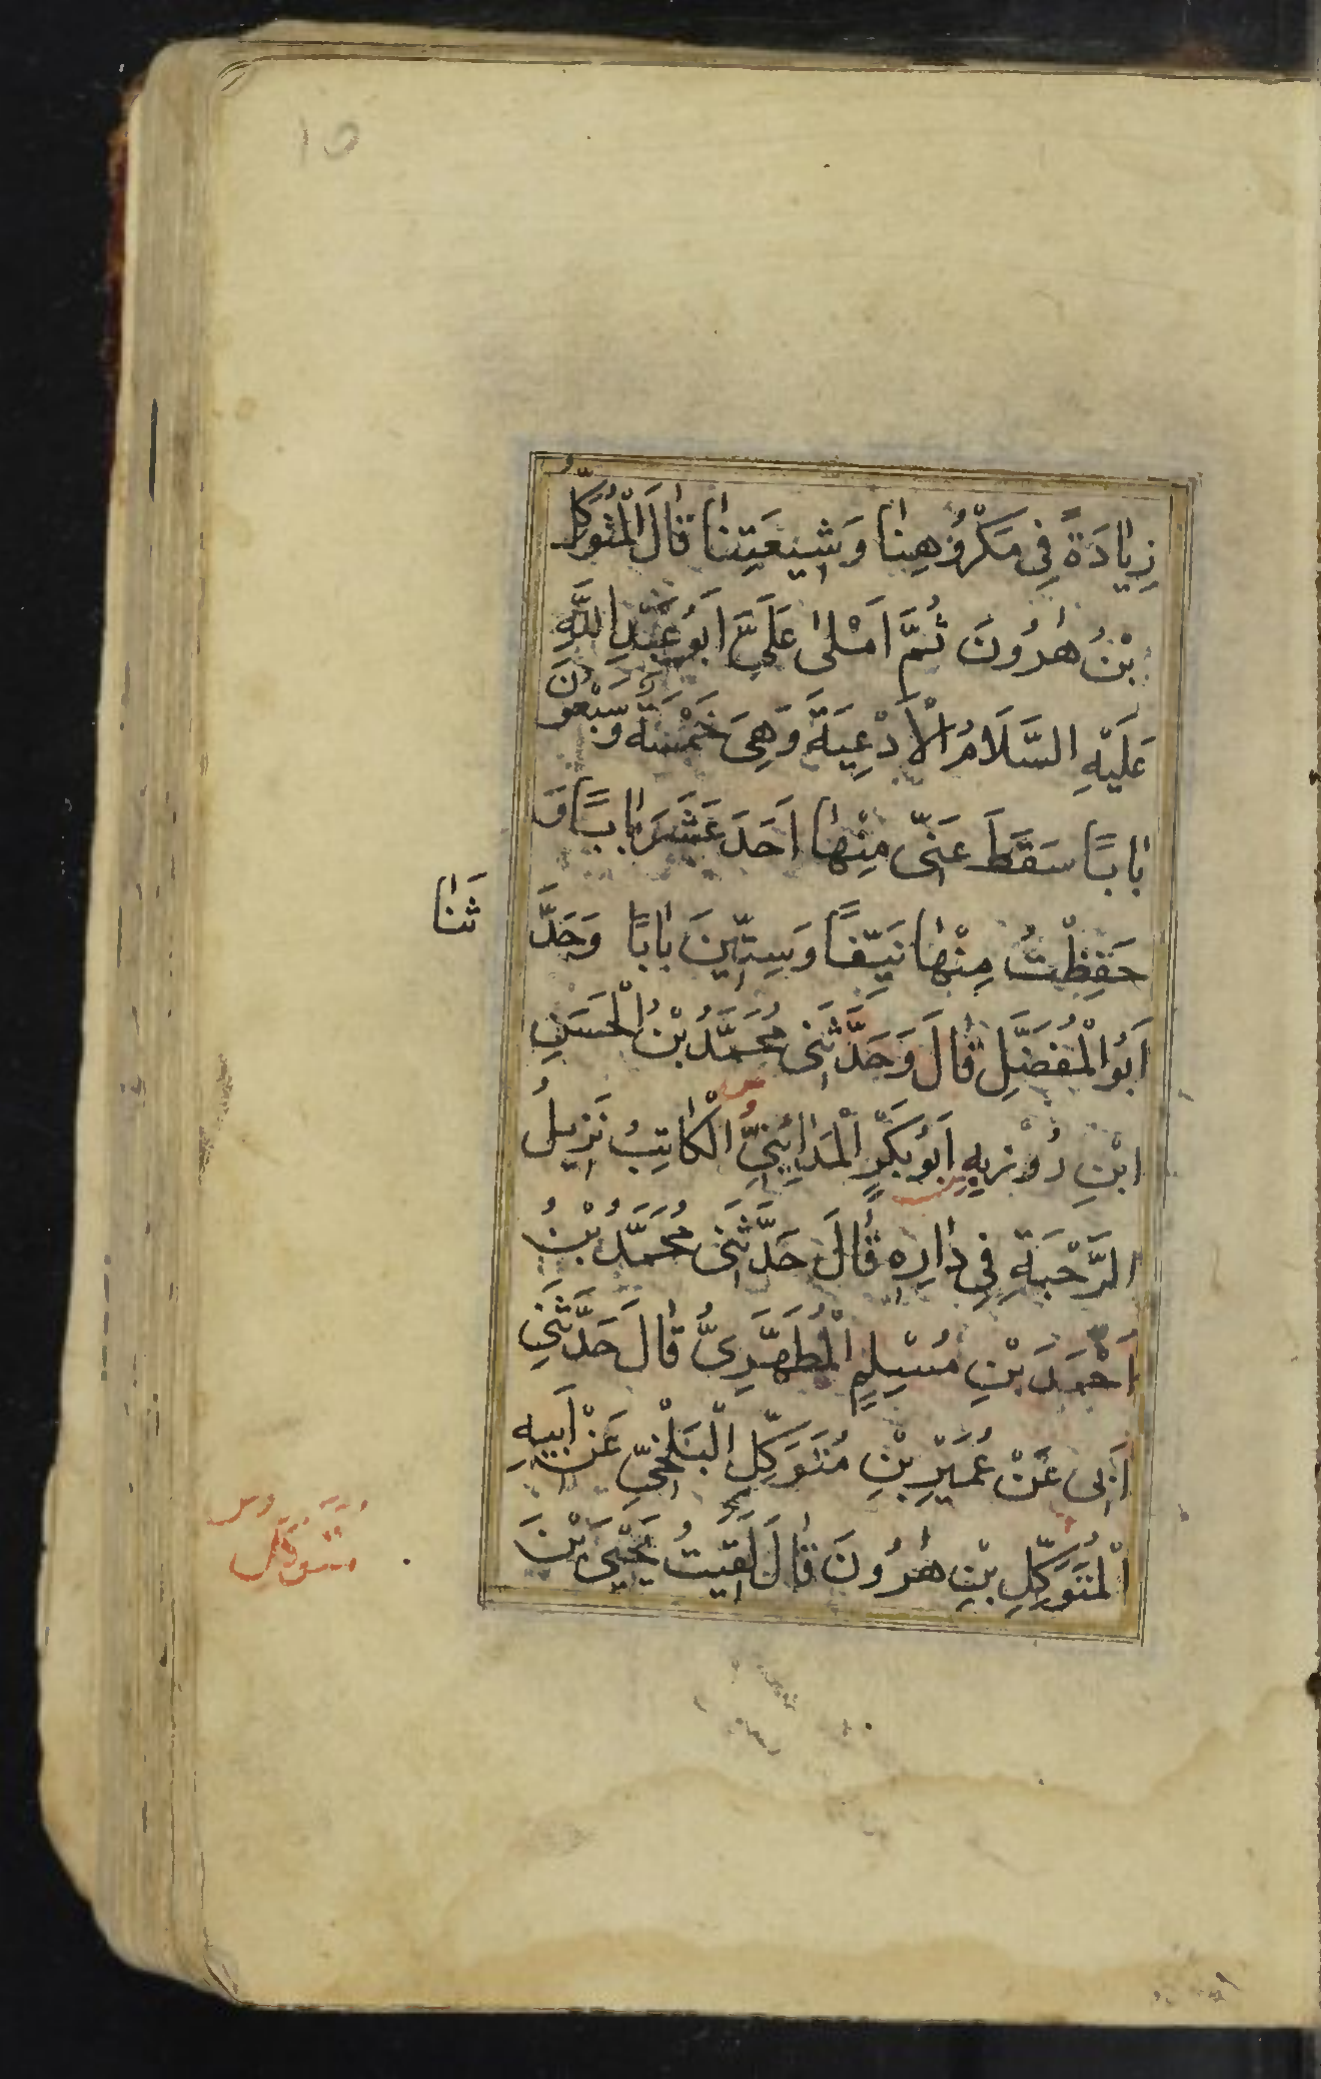 زِيٰادَةً فِي مَكْرُوْهِنٰا وَشِيعَتِنٰا قٰالَ الْمُتَوَكِّلُ
بْنُ هٰرُونَ ثُمَّ اَمْلىٰ عَلَيَّ اَبُو عَبْدِ اللَّهِ
عَلَيْهِ السَّلَامُ الْاَدْعِيَةَ وَهِيَ خَمْسَةٌ وَسَبْعُونَ
بٰابًا سَقَطَ عَنّى مِنْهٰا اَحَدَ عَشَرَ بٰابًا وَ
حَفِظْتُ مِنْهٰا نَيِّفًا وَسِتِّينَ بٰابًا وَحَدَّ
ثَنٰا
اَبُو الْمُفَضَّلِ قٰالَ وَحَدَّثَنى مُحَمَّدُ بْنُ الْحَسَنِ
ابْنِ رُوْزبِهِ اَبُو بَكْرٍ الْمَدٰائِنِيُّ الْكٰاتِبُ نَزِيلُ
الرَّحْبَةِ فِي دٰارِهِ قٰالَ حَدَّثَنى مُحَمَّدُ بْنُ
اَحْمَدَ بْنِ مُسْلِمٍ الْمُطَهَّرِىُّ قٰالَ حَدَّثَنِي
اَبى عَنْ عُمَيْرِ بْنِ مُتَوَكِّلٍ الْبَلْخيِّ عَنْ اَبيهِ
الْمُتَوَكِّلِ بْنِ هٰرُونَ قٰالَ لَقيتُ يَحْيَى بْنَ
مُتَوَكّل